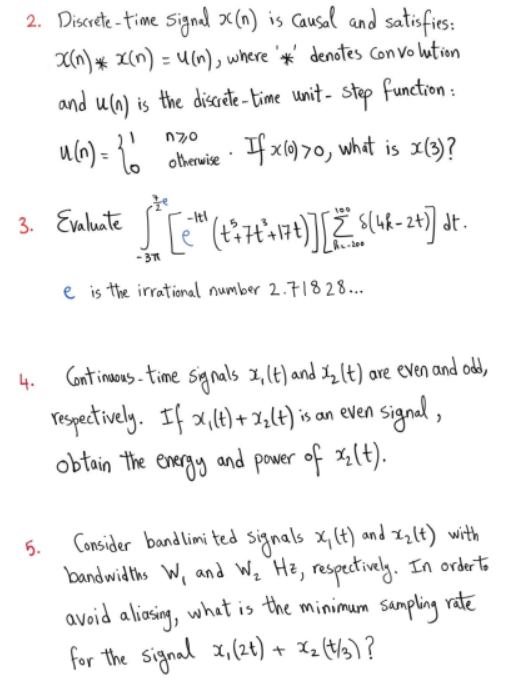 2. Discrete-time signal x(n) is causal and satisfies:
x(n) * x(n) = u(n), where '*' denotes convolution
and u(n) is the discrete-time unit-step function:
u(n) = { 1 n≥0 0 otherwise . If x(0)>0, what is x(3)?
3. Evaluate ∫_{-3π}^{7/2 e} [e^{-|t|} (t^5+7t^3+17t)][∑_{k=-200}^{100} δ(4k-2t)] dt.
e is the irrational number 2.71828...
4. Continuous-time signals x₁(t) and x₂(t) are even and odd,
respectively. If x₁(t) + x₂(t) is an even signal,
obtain the energy and power of x₂(t).
5. Consider bandlimited signals x₁(t) and x₂(t) with
bandwidths W₁ and W₂ Hz, respectively. In order to
avoid aliasing, what is the minimum sampling rate
for the signal x₁(2t) + x₂(t/3)?